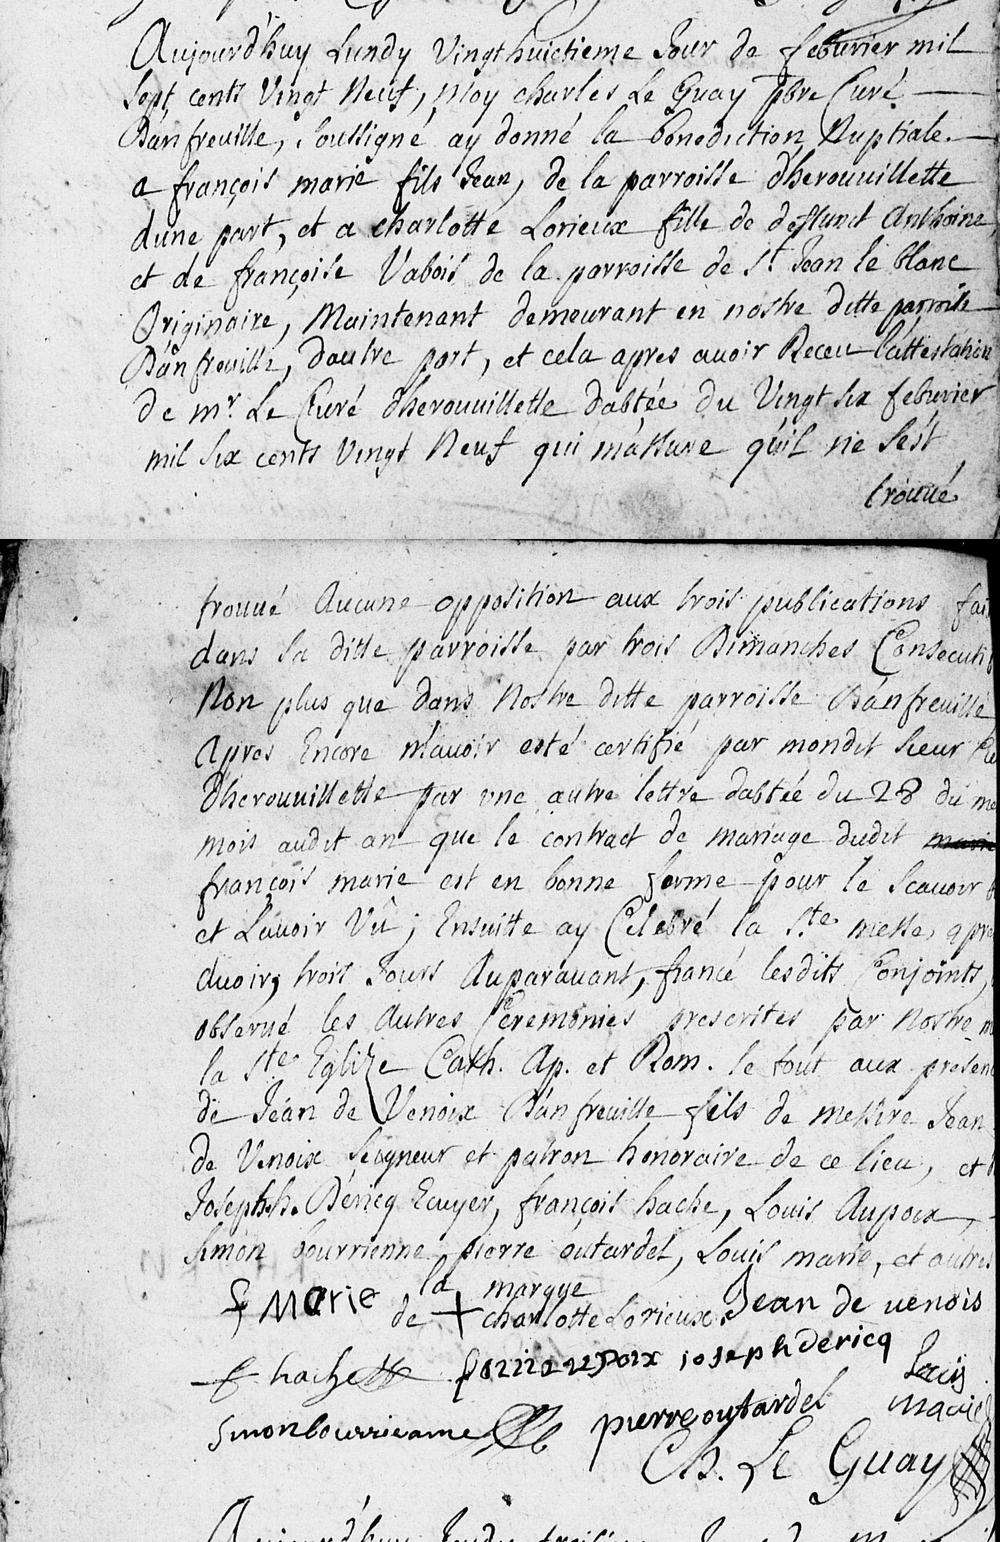 Aujourd'huy Lundy Vingt huictieme Jour de feburier mil
Sept cents Vingt Neuf, Moy charles Le Guay pbre Curé
D'anfreuille, Soussigné ay donné la benediction Nuptiale
a françois marie fils Jean, de la parroisse d'herouuillette
dune part, et a charlotte Lorieux fille de deffunct Anthoine
et de françoise Vabois de la parroisse de St Jean le blanc
Originaire, Maintenant demeurant en nostre ditte parroisse
D'anfreuille, dautre part, et cela apres auoir Receu l'attestation
de mr. Le Curé d'herouuillette dabtée du Vingt six feburier
mil six cents Vingt Neuf qui m'assure qu'il ne s'est
trouué
trouué Aucune opposition aux trois publications fai
dans la ditte parroisse par trois Dimanches Consecuti
Non plus que dans Nostre ditte parroisse D'anfreuille
Apres Encore m'auoir esté certifié par mondit Sieur
D'herouuillette par vne autre lettre dabtée du 28 du me
mois audit an que le contract de mariage dudit marie
françois marie est en bonne forme pour le Scauoir
et L'auoir Vû; Ensuitte ay Celebré la Ste messe, apre
auoir, trois Jours Auparauant, fiancé lesdits Conjoints,
obserué les Autres Ceremonies prescrites par Nostre m
la Ste Eglize Cath. Ap. et Rom. le tout aux presen
de Jean de Venoix D'anfreuille fils de messire Jean
de Venoix Seigneur et patron honoraire de ce lieu, et
Joseph Dericq Ecuyer, françois hache, Louis Aupoix,
Simon bourrienne pierre outardel, Louis marie, et autres
f marie la marque
de + charlotte Lorieux Jean de uenois
f hache Joseph dericq Louis
Simon bourrienne pierre outardel marie
Ch. Le Guay
Aujourd'huy